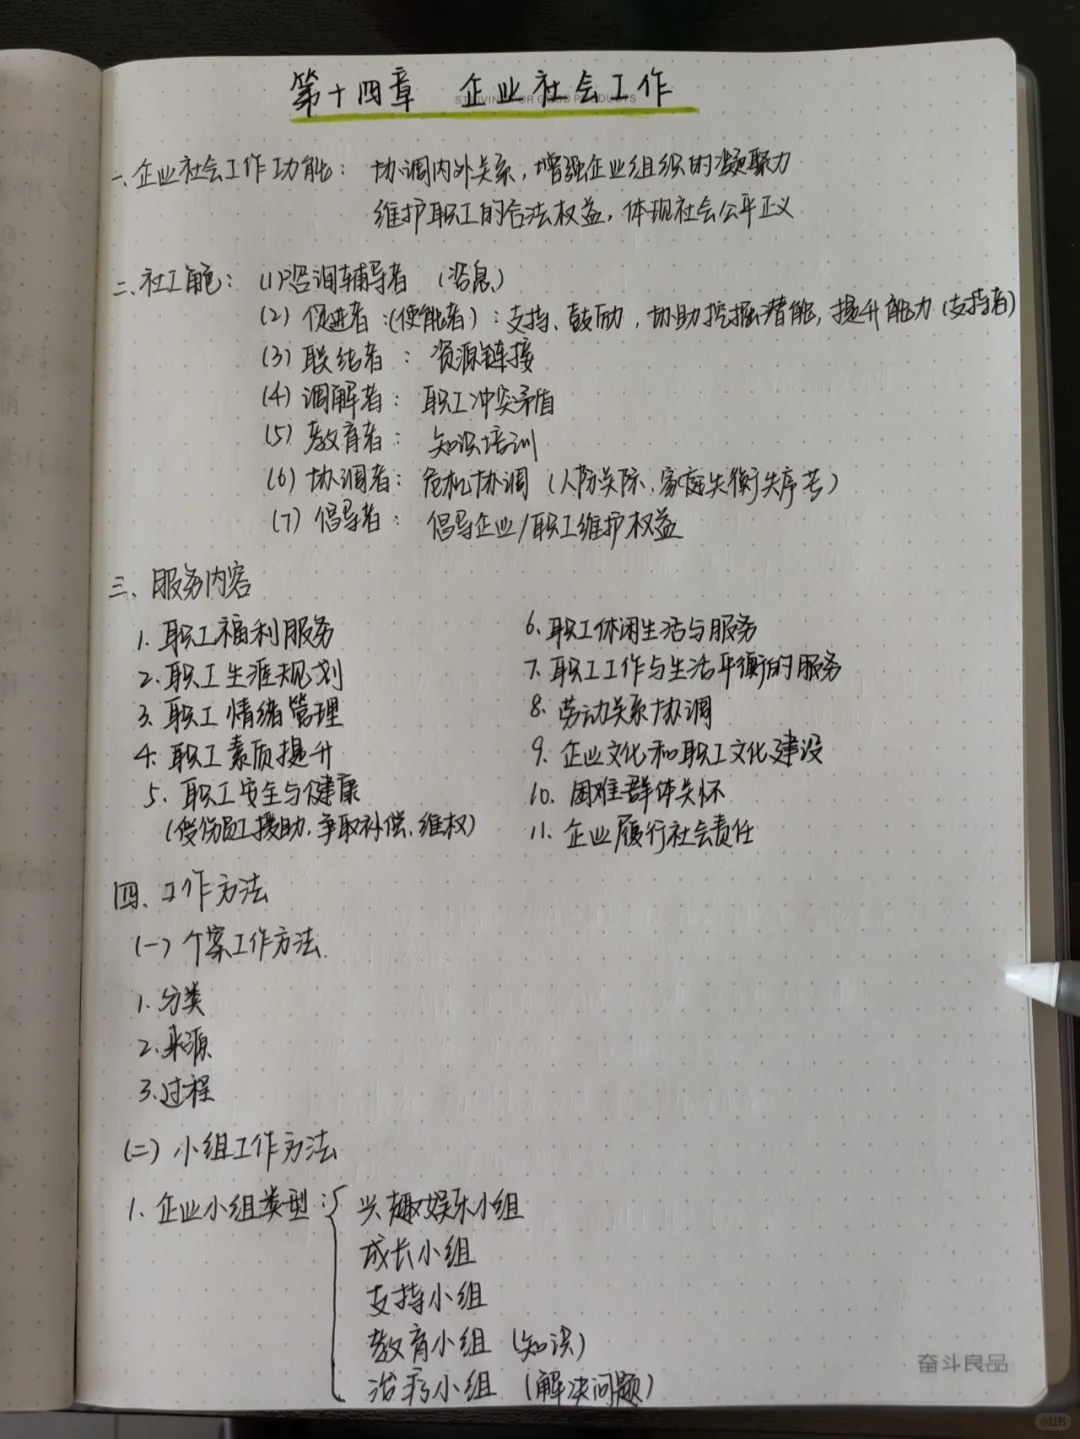 第十四章 企业社会工作
一、企业社会工作功能：协调内外关系，增强企业组织的凝聚力
维护职工的合法权益，体现社会公平正义
二、社工角色：(1)咨询辅导者（消息）
(2) 促进者：(使能者)：支持、鼓励，协助挖掘潜能，提升能力（支持者）
(3) 联结者：资源链接
(4) 调解者：职工冲突矛盾
(5) 教育者：知识培训
(6) 协调者：危机协调（人际关际、家庭失衡失序等）
(7) 倡导者：倡导企业/职工维护权益
三、服务内容
1. 职工福利服务
2. 职工生涯规划
3. 职工情绪管理
4. 职工素质提升
5. 职工安全与健康
（受伤员工援助，争取补偿、维权）
6. 职工休闲生活与服务
7. 职工工作与生活平衡的服务
8. 劳动关系协调
9. 企业文化和职工文化建设
10. 困难群体关怀
11. 企业履行社会责任
四、工作方法
(一) 个案工作方法
1. 分类
2. 来源
3. 过程
(二) 小组工作方法
1. 企业小组类型：兴趣娱乐小组
成长小组
支持小组
教育小组（知识）
治疗小组（解决问题）
奋斗良品
小红书